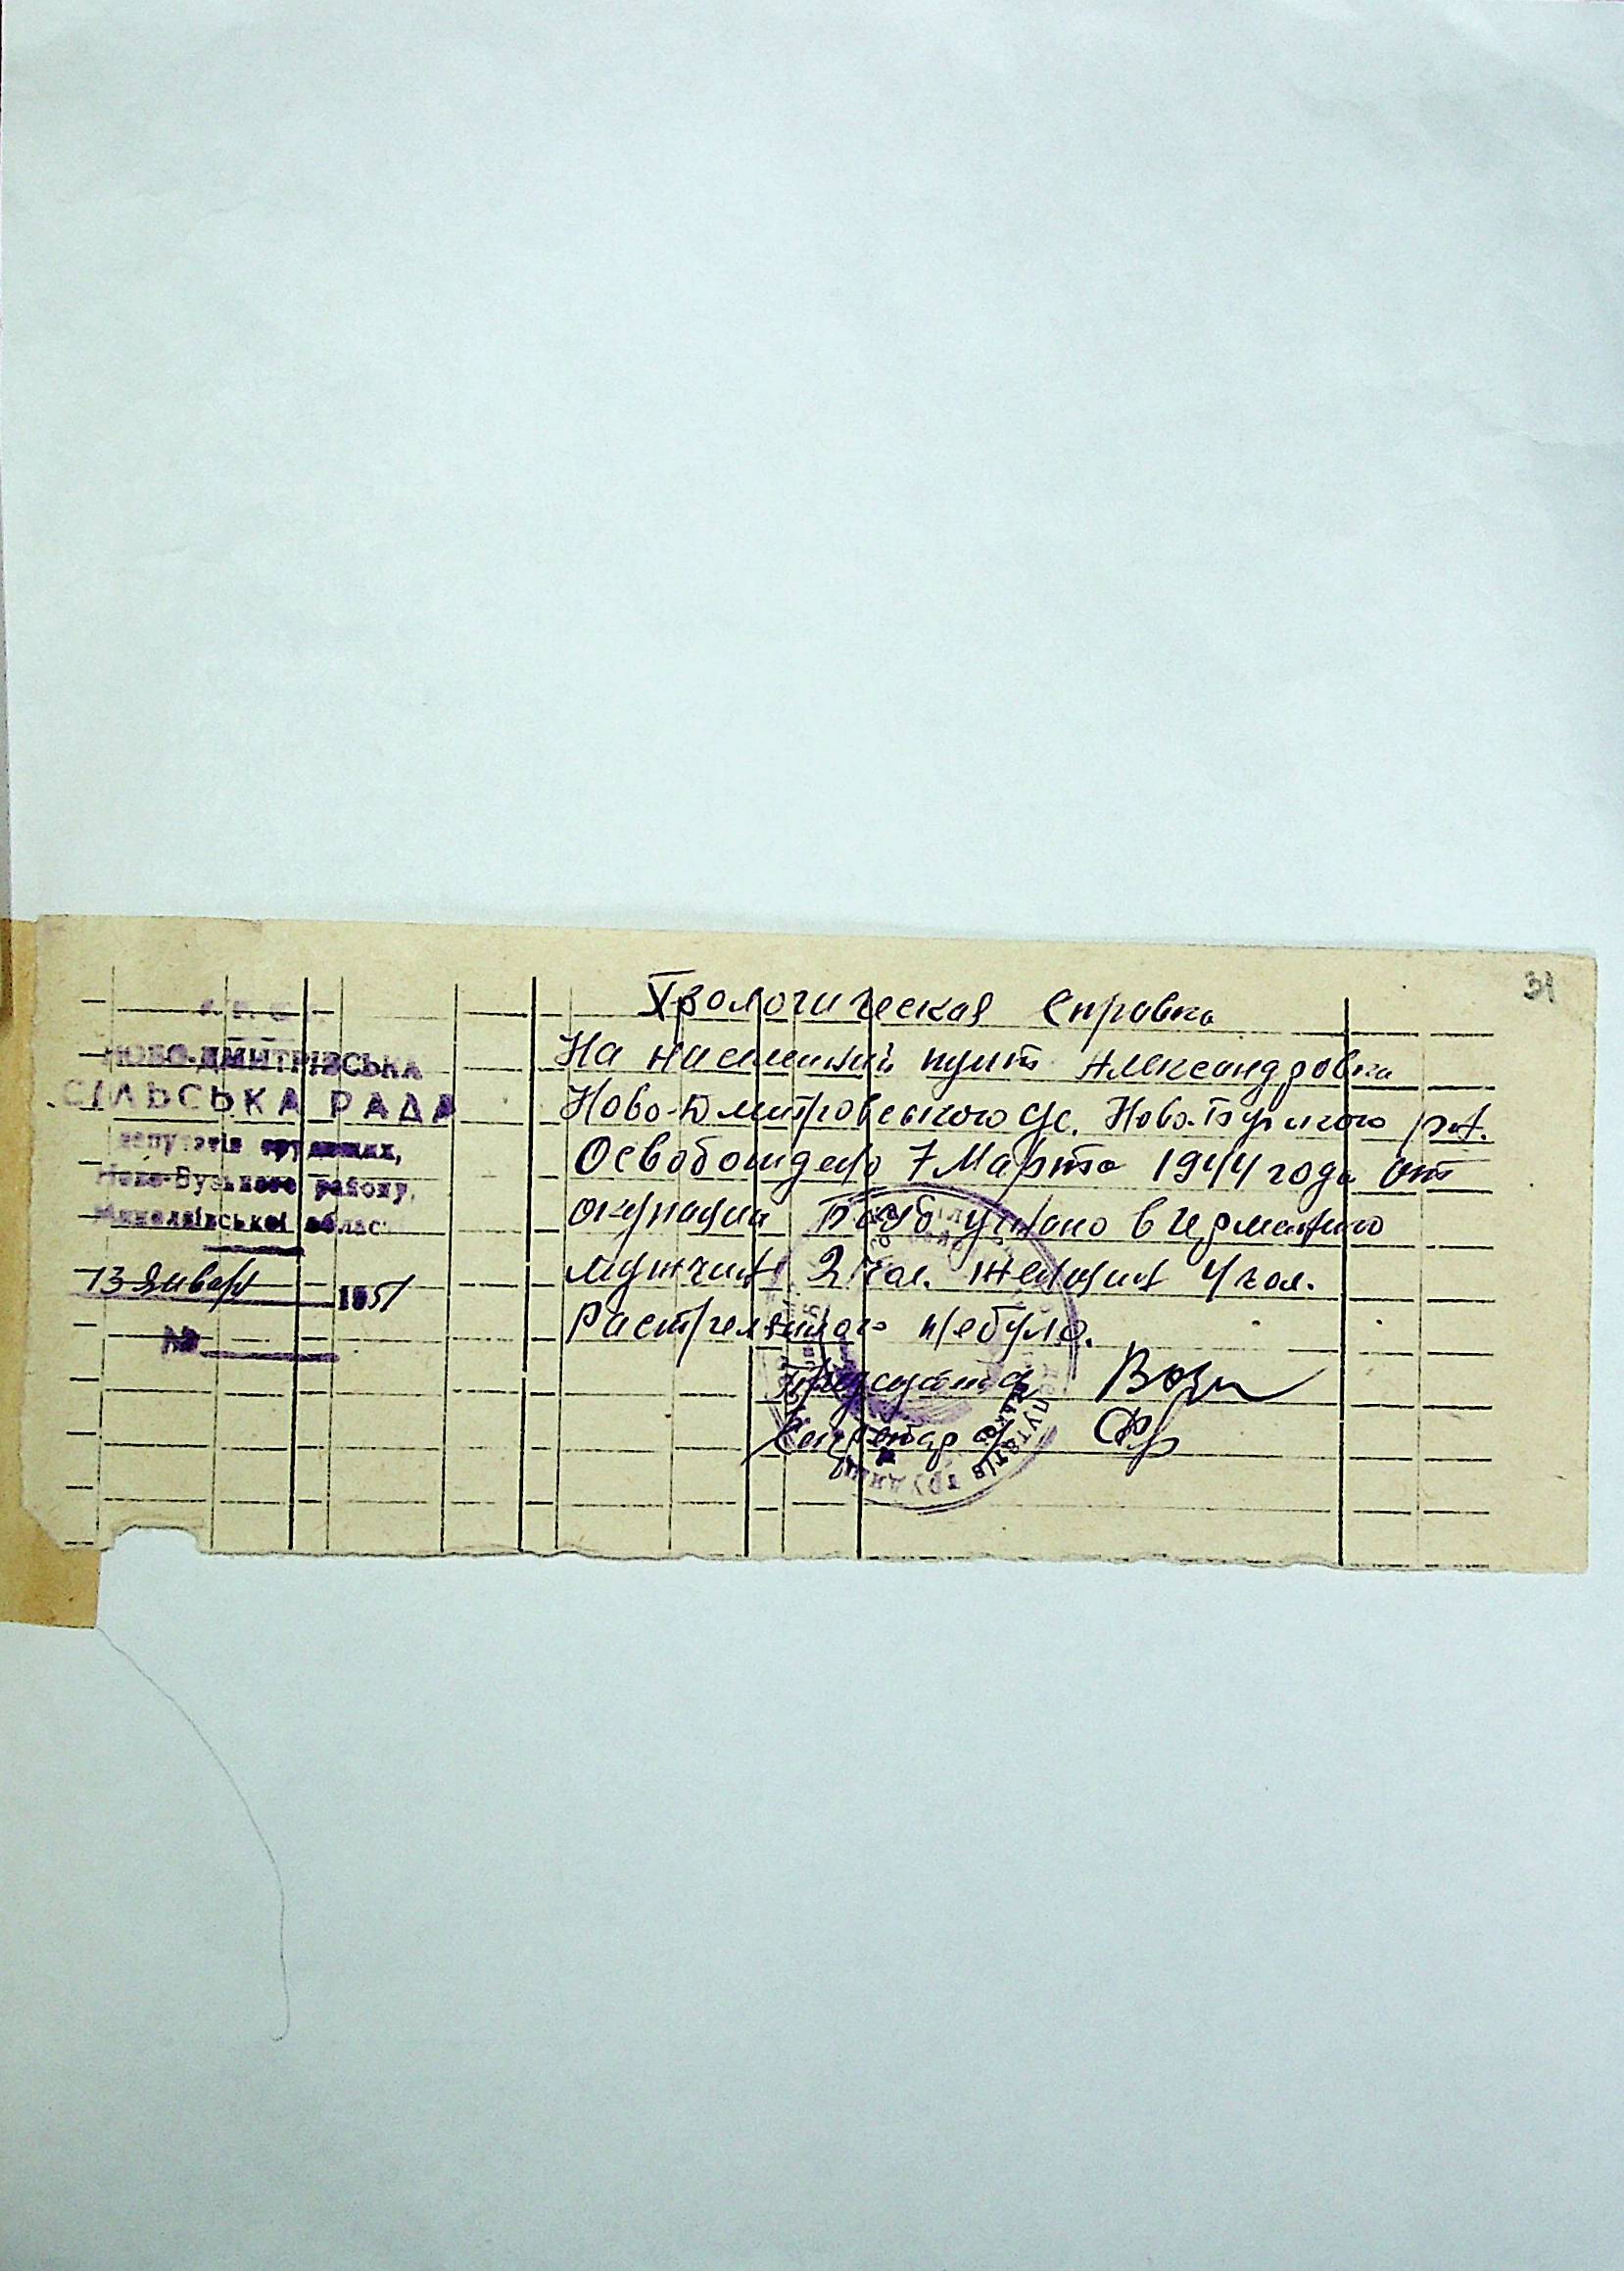 31
НОВО-ДМИТРІВСЬКА
СІЛЬСЬКА РАДА
депутатів трудящих,
Ново-Бузького району,
Миколаївської област
13 Января 1951
№
Хрологическая Справка
На населений пункт Александровка
Ново-Дмитровського с/с. Ново-Бугского р-н.
Освобождено 7 Марта 1944 года от
окупации Било угнано в Германию
мужчин 2 чол. женщин 4 чол.
Растреляного небуло.
Секретар